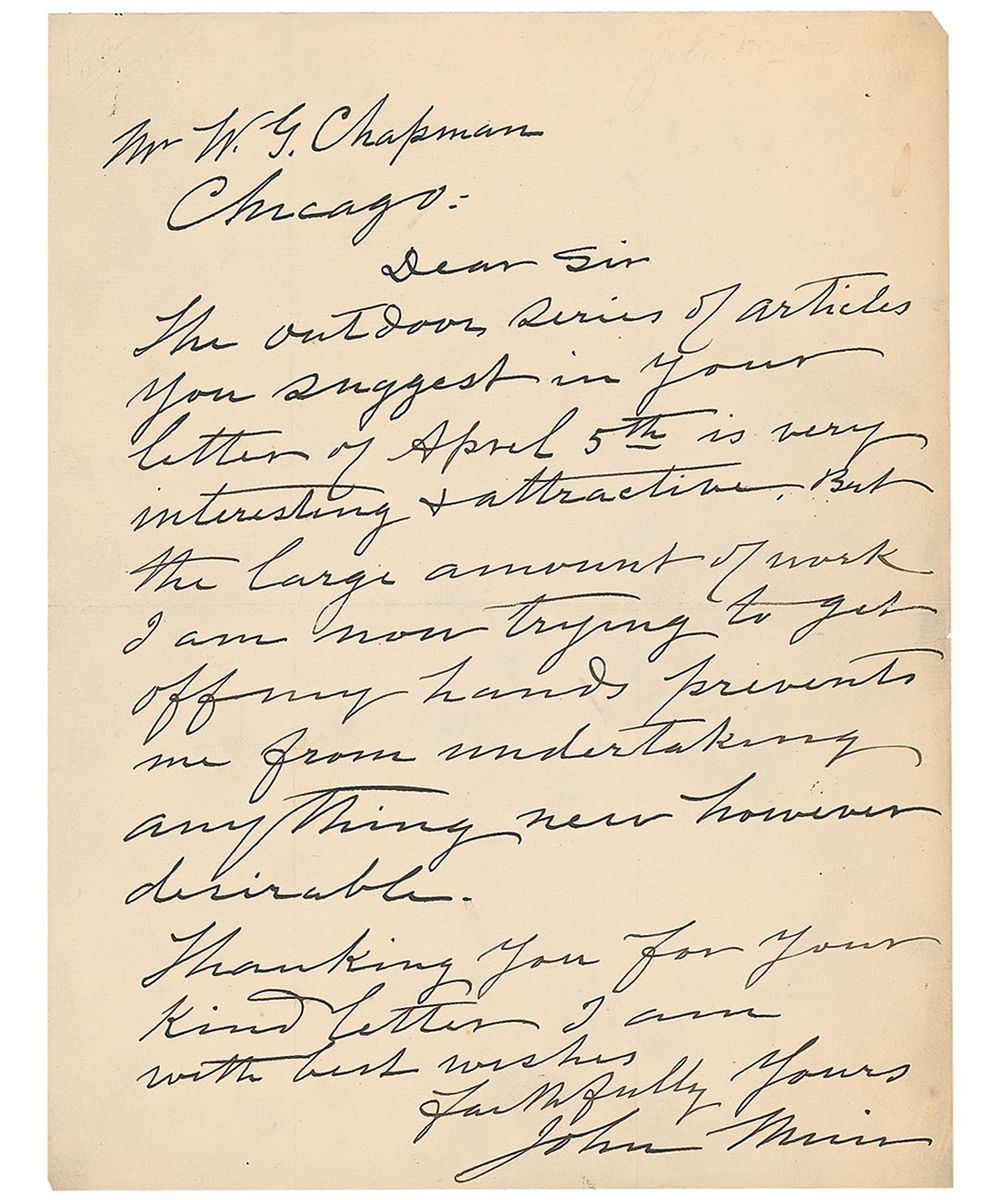 Mr W. G. Chapman
Chicago:
Dear Sir
The outdoor series of articles
you suggest in your
letter of April 5th is very
interesting & attractive. But
the large amount of work
I am now trying to get
off my hands prevents
me from undertaking
anything new however
desirable.
Thanking you for your
kind letter I am
with best wishes
Faithfully Yours
John Muir